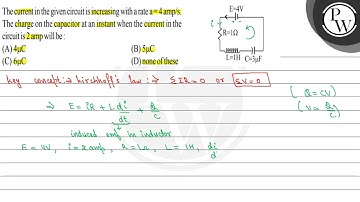 The current in the given circuit is increasing with a rate a = 4 amp/s.
The charge on the capacitor at an instant when the current in the
circuit is 2 amp will be :
(A) 4μC (B) 5μC
(C) 6μC (D) none of these
E=4V
i
R=1Ω
L=1H C=3μF
PW
key concept:- kirchhoff's law :⇒ ΣIR=0 or ΣV=0
⇒ E = iR + L di/dt + Q/C
( Q=CV )
( V = Q/C )
induced emf in inductor
E = 4V, i = 2 amp, R = 1Ω, L = 1H, di/d